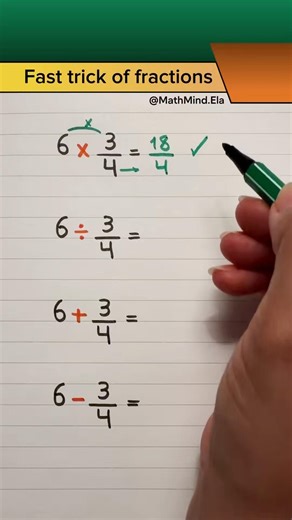 Fast trick of fractions
@MathMind.Ela
x
6 x 3/4 = 18/4 ✓
6 ÷ 3/4 =
6 + 3/4 =
6 - 3/4 =